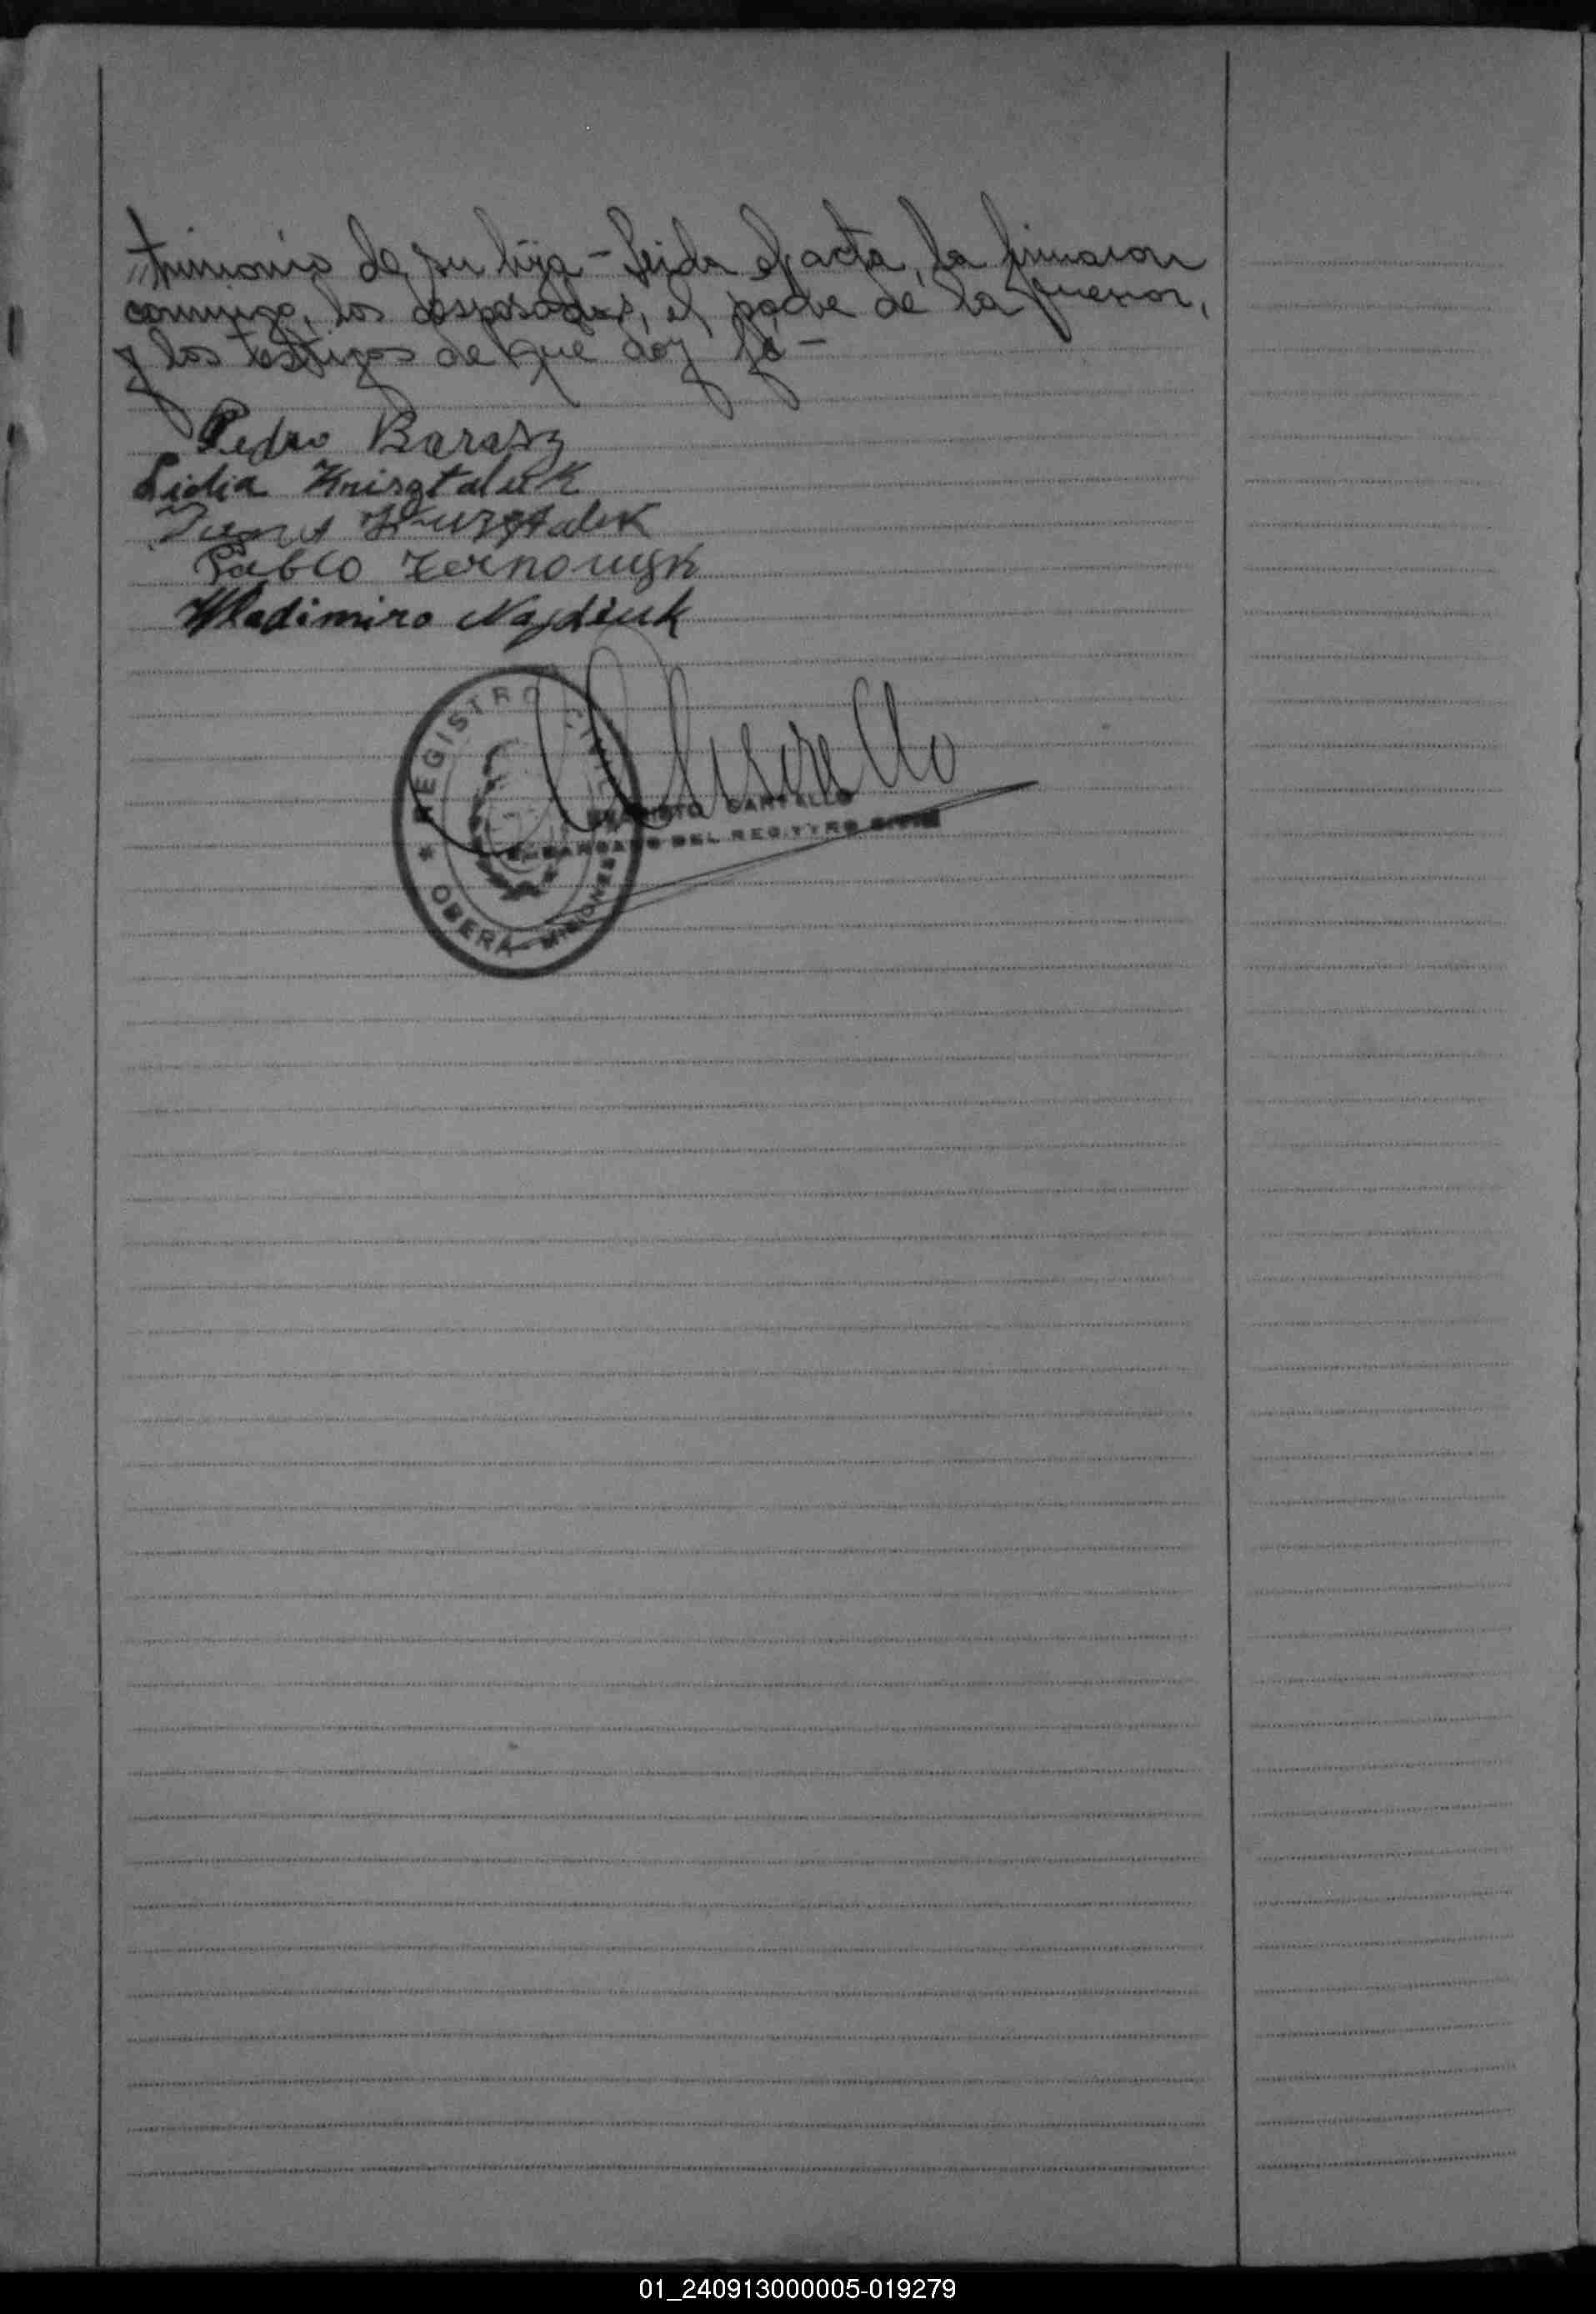 „trimonio de su hija - Leida el acta, la firmaron
conmigo, los desposados, el padre de la menor,
y los testigos de que doy fé -
Pedro Barasz
Lidia Knisztaluk
Pablo Zernouysk
Wladimiro Najdiuk
REGISTRO CIVIL
OBERA - MISIONES
ENCARGADO DEL REGISTRO CIVIL
01_240913000005-019279